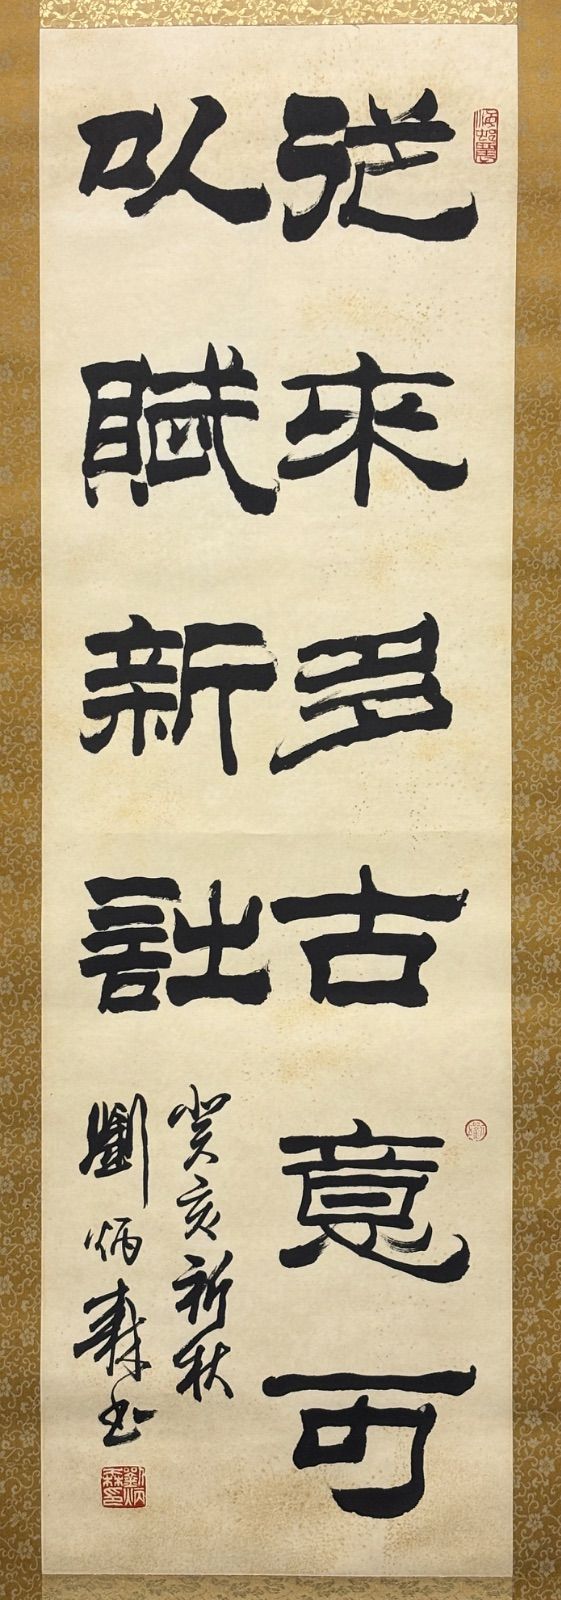 從來多古意可
以賦新詩
癸亥新秋
劉炳森書
劉炳森印